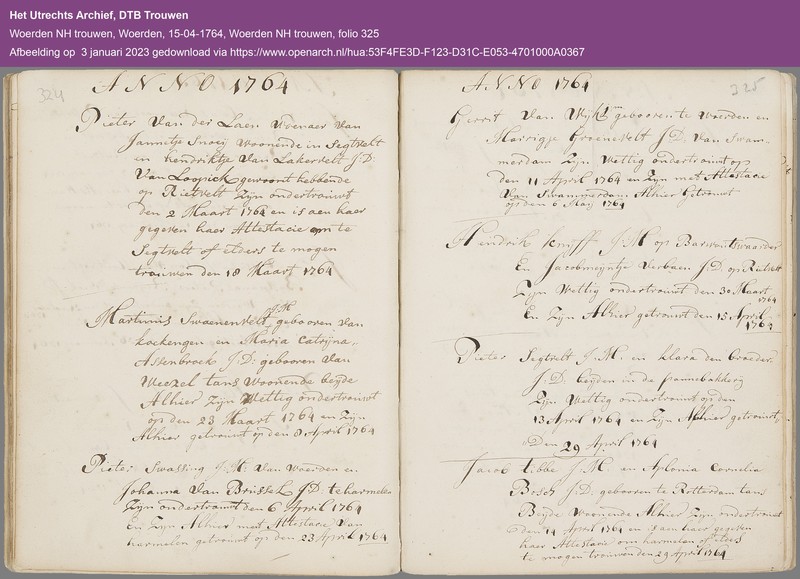 Het Utrechts Archief, DTB Trouwen
Woerden NH trouwen, Woerden, 15-04-1764, Woerden NH trouwen, folio 325
Afbeelding op 3 januari 2023 gedownload via https://www.openarch.nl/hua:53F4FE3D-F123-D31C-E053-4701000A0367
324
ANNO 1764
Pieter Van der Laen Van
Jannetje Snoey woonende in Segtvelt
en hendriktje Van Lakervelt J:D:
Van Loopick gewoont hebbende
op Rietvelt Zyn ondertrouwt
den 2 Maart 1764 en is aen haer
gegeven haer Attestacie om te
Segtvelt of elders te mogen
trouwen den 18 Maart 1764
Martinus Swaenenvelt J:M: gebooren van
kockengen en Maria Catryna
Assenbroek J:D: gebooren van
Weezel tans Woonende beyde
Alhier Zyn Wettig ondertrouwt
op den 23 Maart 1764 en Zyn
Alhier getrouwt op den 8 April 1764
Pieter Swassing J:M: Van Woerden en
Johanna Van Brussel J:D: te harmelen
Zyn ondertrouwt den 6 April 1764
En Zyn Alhier met Attestacie Van
harmelen getrouwt op den 23 April 1764
325
ANNO 1764
Gerrit Van Wyk J:M: gebooren te Woerden en
Marrigje Groenevelt J:D: Van Swam-
merdam Zyn Wettig ondertrouwt op
den 11 April 1764 en Zyn met Attestacie
Van Swammerdam Alhier Getrouwt
op den 6 May 1764
Hendrik Kniff J:M: op Barwoutswaarder
En Jacobmeyntje Verbaen J:D: op Rietvelt
Zyn Wettig ondertrouwt den 30 Maart
1764
En Zyn Alhier getrouwt den 15 April
1764
Pieter Segtvelt J:M: en klara den Broeder
J:D: beyden in de pannebakkery
Zyn Wettig ondertrouwt op den
13 April 1764 en Zyn Alhier getrouwt
Den 29 April 1764
Jacob tibbe J:M: en Aplonia Cornelia
Bosch J:D: gebooren te Rotterdam tans
Beyde Woonende Alhier Zyn ondertrouwt
den 14 April 1764 en is aen haer gegeven
haer Attestacie om harmelen of elders
te mogen trouwen den 29 April 1764